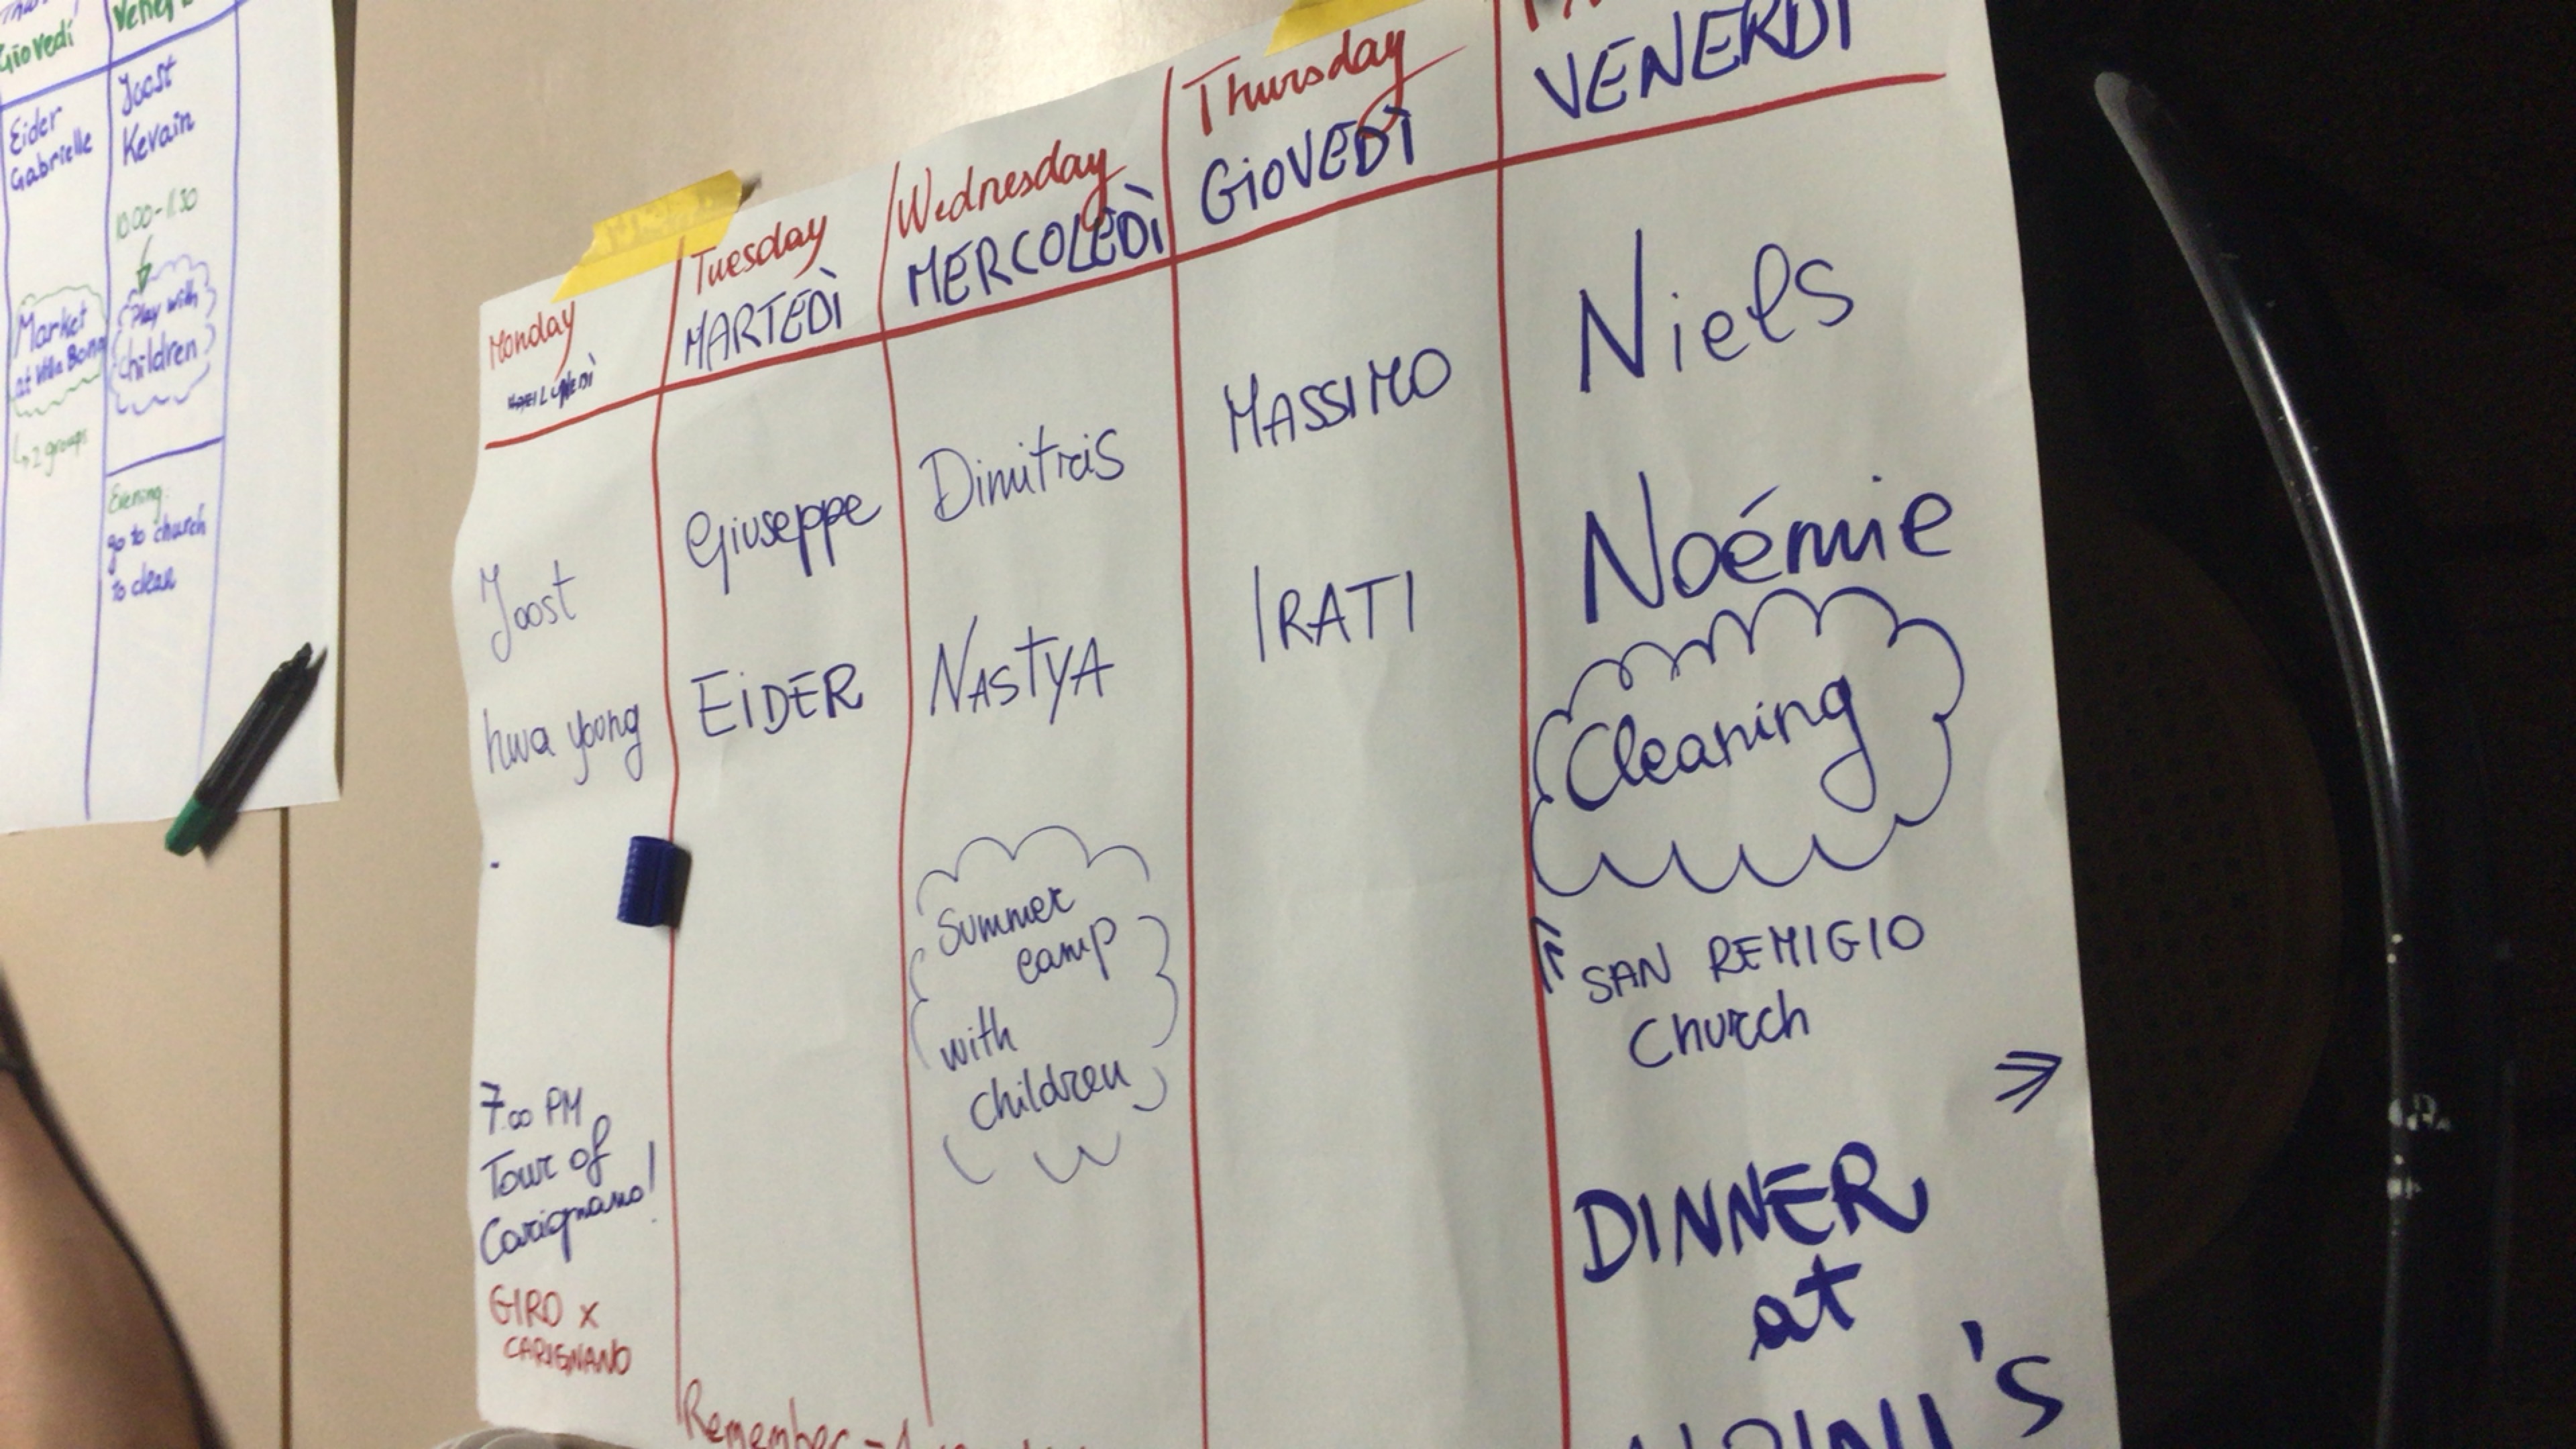 Giovedí
Eider
Gabrielle
Market
at Villa Bona
2 groups
Joost
Kevain
10.00-11.30
Play with
children
Evening:
go to church
to clean
Monday
LUNEDÌ
Joost
hwa young
7.00 PM
Tour of
Carignano!
GIRO x
CARIGNANO
Tuesday
MARTEDÌ
Giuseppe
EIDER
Wednesday
MERCOLEDÌ
Dimitris
NASTYA
Summer
camp
with
children
Thursday
GIOVEDÌ
MASSIMO
IRATI
VENERDÌ
Niels
Noémie
Cleaning
SAN REMIGIO
Church
DINNER
at
ALPINI'S
Remember